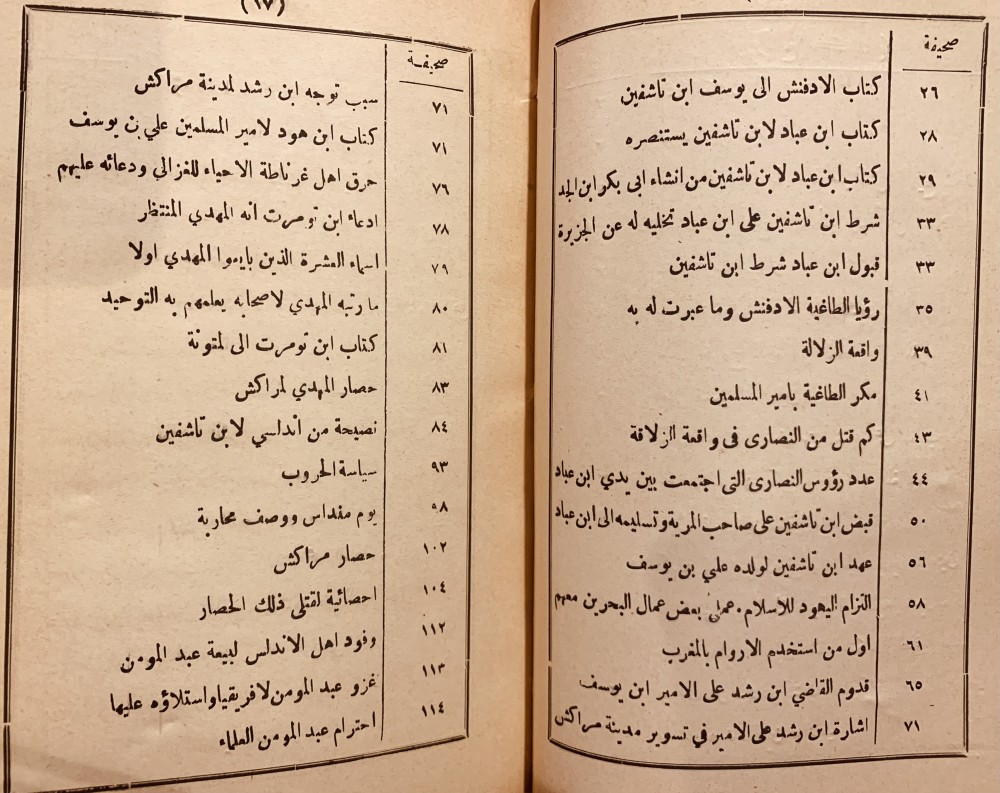 صحيفة
٢٦ كتاب الادفنش الى يوسف ابن تاشفين
٢٨ كتاب ابن عباد لابن تاشفين يستنصره
٢٩ كتاب ابن عباد لابن تاشفين من انشاء ابى بكر ابن الجد
٣٣ شرط ابن تاشفين على ابن عباد تخليه له عن الجزيرة
٣٣ قبول ابن عباد شرط ابن تاشفين
٣٥ رؤيا الطاغية الادفنش وما عبرت له به
٣٩ واقعة الزلالة
٤١ مكر الطاغية بامير المسلمين
٤٣ كم قتل من النصارى فى واقعة الزلاقة
٤٤ عدد رؤوس النصارى التى اجتمعت بين يدي ابن عباد
٥٠ قبض ابن تاشفين على صاحب المرية وتسليمه الى ابن عباد
٥٦ عهد ابن تاشفين لولده علي بن يوسف
٥٨ التزام اليهود للاسلام. عمل بعض عمال البحرين معهم
٦١ اول من استخدم الاروام بالمغرب
٦٥ قدوم القاضي ابن رشد على الامير ابن يوسف
٧١ اشارة ابن رشد على الامير في تسوير مدينة مراكش
(١٧)
صحيفة
٧١ سبب توجه ابن رشد لمدينة مراكش
٧١ كتاب ابن هود لامير المسلمين علي بن يوسف
٧٦ حرق اهل غرناطة الاحياء للغزالي ودعائه عليهم
٧٨ ادعاء ابن تومرت انه المهدي المنتظر
٧٩ اسماء العشرة الذين بايعوا المهدي اولا
٨٠ ما رتبه المهدي لاصحابه يعلمهم به التوحيد
٨١ كتاب ابن تومرت الى لمتونة
٨٣ حصار المهدي لمراكش
٨٤ نصيحة من اندلسي لابن تاشفين
٩٣ سياسة الحروب
٩٨ يوم مقداس ووصف محاربة
١٠٢ حصار مراكش
١٠٤ احصائية لقتلى ذلك الحصار
١١٢ وفود اهل الاندلس لبيعة عبد المومن
١١٣ غزو عبد المومن لافريقيا واستلاؤه عليها
١١٤ احترام عبد المومن العلماء